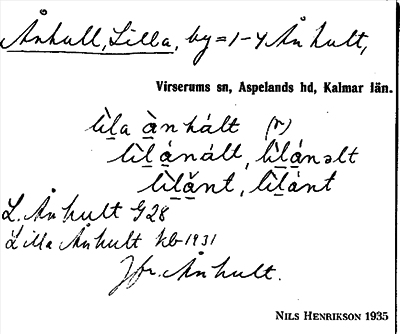 Ånhult, Lilla, by = 1-4 Ånhult,
Virserums sn, Aspelands hd, Kalmar län.
lìl̠a à̠nhált (r)
lìl̠á̠nált, lìl̠á̠nəlt
lìl̠ǻ̠nt, lìl̠á̠nt
L. Ånhult G28
Lilla Ånhult kb 1931
Jfr. Ånhult.
NILS HENRIKSON 1935